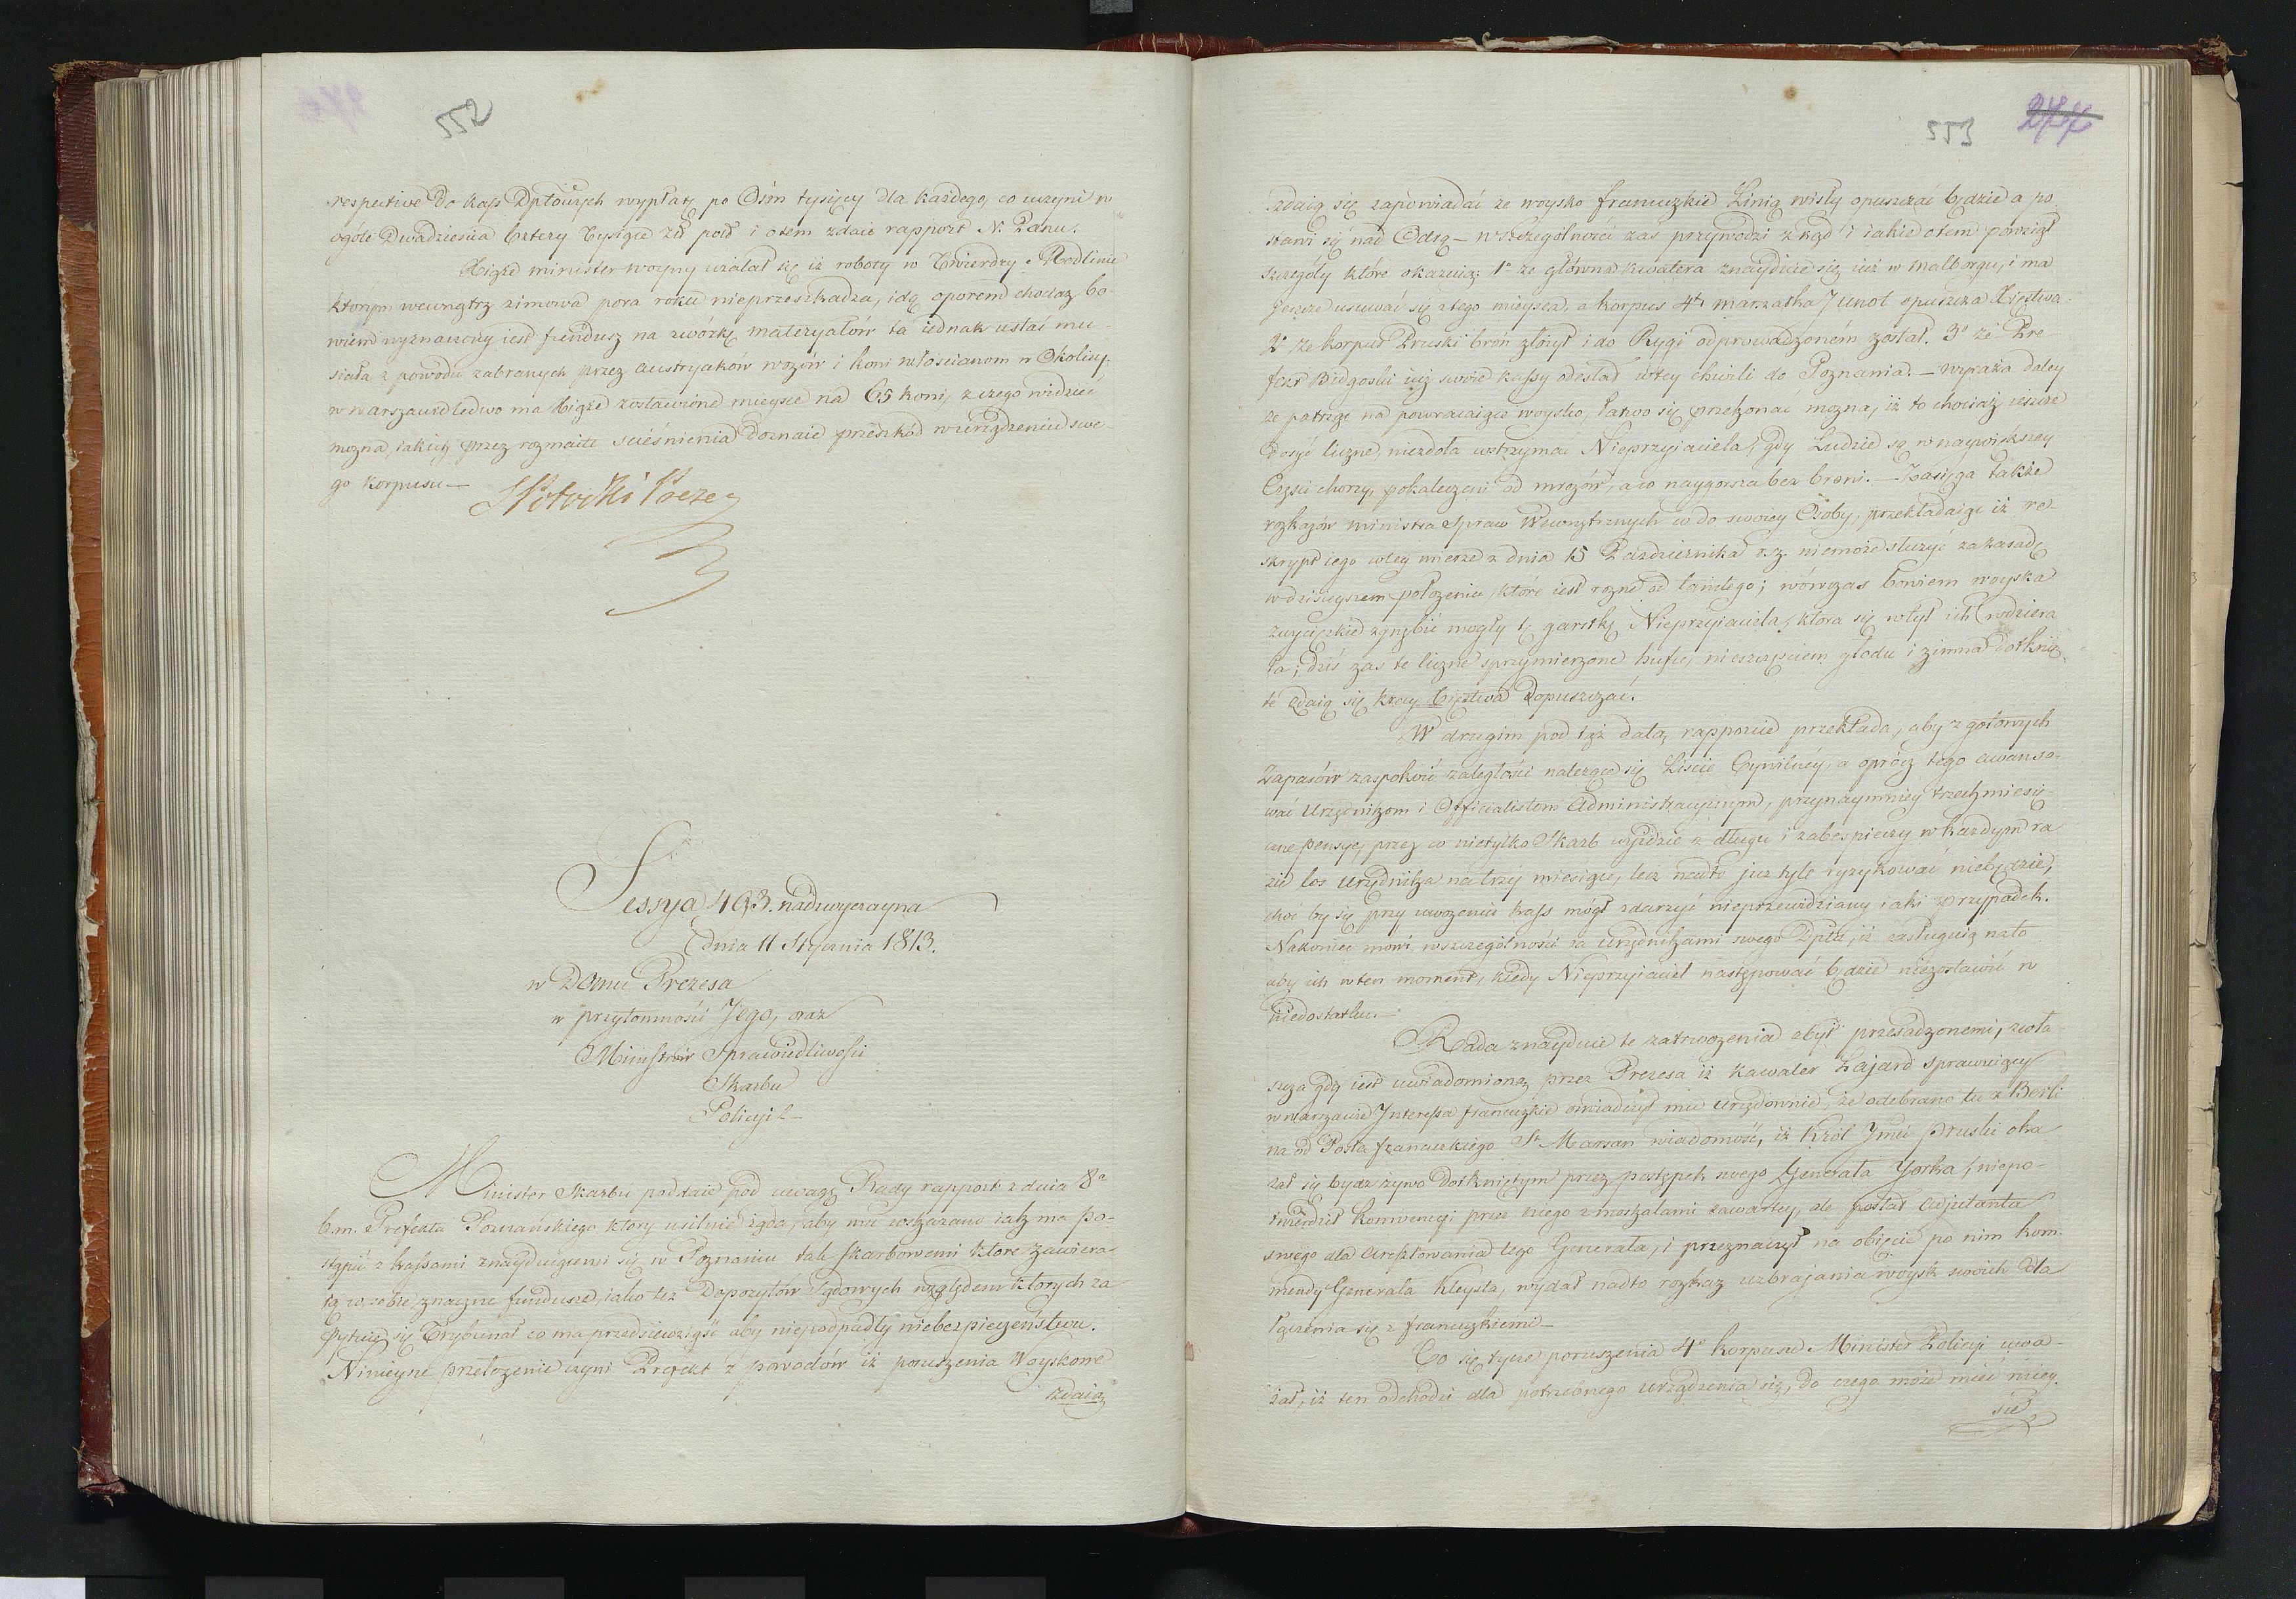 552
respective do kass Dptowych wypłaty po Ośm tysięcy dla każdego, co uczyni w
ogóle Dwadzieścia Cztery Tysiące Złł pols i otem zdaie rapport N. Panu.
Xiąże minister woyny użalał się iż roboty w Twierdzy Modlinie
którym wewnątrz zimowa pora roku nieprzeszkadza, idą oporem chociaż bo
wiem wyznaczony iest fundusz na zwózkę materyałów ta iednak ustać mu-
siała z powodu zabranych przez Austryaków wozów i koni włościanom w Okolicy.
w Warszawie ledwo ma Xiąże zostawione mieysce na 65 koni, z czego widzieć
można, iakich przez rozmaite ścieśnienia doznaie przeszkód w urządzeniu swe-
go korpusu —
St Potocki Prezes
Sessya 493. nadzwyczayna
Dnia 11 Stycznia 1813.
w Domu Prezesa
w przytomności Jego, oraz
Ministrów Sprawiedliwości
Skarbu
Policyi —
Minister Skarbu poddaie pod uwagę Rady rapport z dnia 8o
b.m. Prefekta Poznańskiego który usilnie żąda, aby mu wskazano iak ma po-
stąpić z kassami znayduiącemi się w Poznaniu tak skarbowemi które zawiera
ią w sobie znaczne fundusze, iako też Depozytów Sądowych względem których za
pytuie się Trybunał co ma przedsięwziąść aby niepodpadły niebezpieczeństwu.
Ninieysze przełożenie czyni Prefekt z powodów iż poruszenia Woyskowe
zdaią
553
277
zdaią się zapowiadać że woysko francuzkie Linią wisły opuszczać będzie a po
stawi się nad Odrą — w szczególności zaś przywodzi zkąd i iakie otem powziął
szczegóły które okazuią: 1o że główna kwatera znayduie się iuż w Malborgu, i ma
ieszcze usuwać się ztego mieysca, a korpus 4ty marszałka Junot opuszcza Xięstwo.
2o że korpus Pruski broń złożył i do Rygi odprowadzonem został. 3o że Pre-
fekt Bidgoski iuż swoie kassy odesłał wtey chwili do Poznania. — wyraża daley
że patrząc na powracaiące woysko, łatwo się przekonać można, iż to chociaż ieszcze
dosyć liczne, niezdoła wstrzymać Nieprzyiaciela, gdy Ludzie są w naywiększey
Części chorzy, pokaleczeni od mrozów, a co naygorsza bez broni. — Zasięga także
rozkazów ministra Spraw Wewnętrznych co do swoiey Osoby, przekładaiąc iż re-
skrypt iego wtey mierze z dnia 15 Października r.z. niemoże służyć za zasadę
w dzisieyszem położeniu, które iest rożne od tamtego; wówczas bowiem woyska
zwycięzkie zgnębić mogły tę garstkę Nieprzyiaciela, która się wtył ich wdziera
ła; dziś zaś te liczne sprzymierzone hufce, nieszczęściem głodu i zimna dotknię-
te zdaią się kray Xięstwa opuszczać.
W drugim pod tąż datą rapporcie przekłada, aby z gotowych
Zapasów zaspokoić zaległości należące się Liście Cywilney, a oprócz tego awanso-
wać Urzędnikom i Officialistom Administracyinym, przynaymniey trzechmiesię-
czne pensye, przez co nietylko Skarb wyidzie z długu i zabespieczy w każdym ra
zie los urzędnika na trzy miesiące, lecz nadto już tyle ryzykować niebędzie,
choćby się przy uwożeniu kass mógł zdarzyć nieprzewidziany iaki przypadek.
Nakoniec mówi w szczególności za urzędnikami swego Dptu, iż zasługuią nato
aby ich w ten moment, kiedy Nieprzyiaciel następować będzie niezostawić w
niedostatku. —
Rada znayduie te zatrwożenia zbyt przesadzonemi, zwła-
szcza gdy iest uwiadomioną przez Prezesa iż kawaler Lajard sprawuiący
w Warszawie Interessa francuzkie oświadczył mu urzędownie, że odebrano tu z Berli
na od Posła francuzkiego St Marsan wiadomość, iż Król Jmć Pruski oka
zał się bydź żywo dotkniętym przez postępek swego Generała Yorka, niepo-
twierdził konwencyi przez niego z moskalami zawartey, ale posłał Adjutanta
swego dla aresztowania tego Generała, i przeznaczył na obięcie po nim kom-
mendy Generała Kleysta, wydał nadto rozkaz uzbrajania woysk swoich dla
łączenia się z francuzkiemi —
Co się tycze poruszenia 4o korpusu Minister Policyi uwa-
żał, iż ten odchodzi dla potrzebnego urządzenia się, do czego może mieć miey-
sce